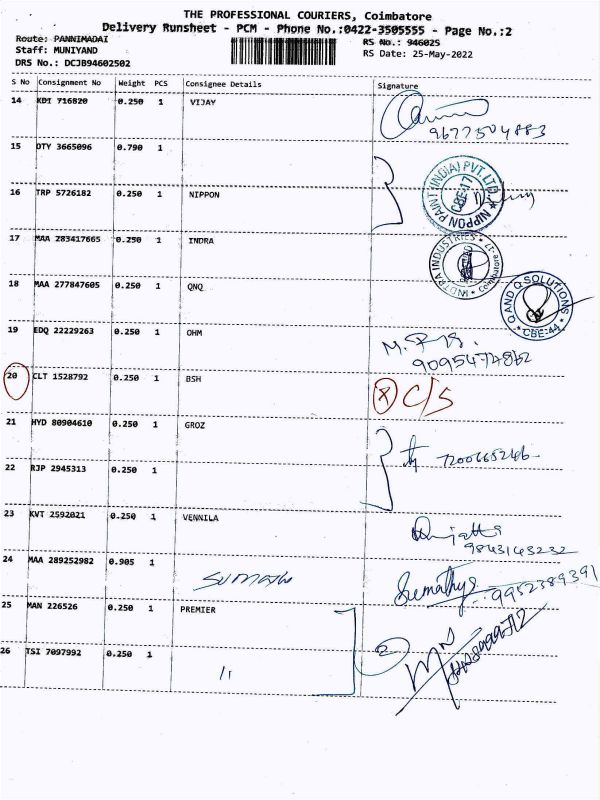 THE PROFESSIONAL COURIERS, Coimbatore
Delivery Runsheet - PCM - Phone No.:0422-3505555 - Page No.:2
Route: PANNIMADAI
RS No.: 946025
Staff: MUNIYAND
RS Date: 25-May-2022
DRS No.: DCJB94602502
S No Consignment No Weight PCS Consignee Details Signature
14 KDI 716820 0.250 1 VIJAY
9677504883
15 OTY 3665096 0.790 1
16 TRP 5726182 0.250 1 NIPPON
NIPPON PAINT (INDIA) PVT. LTD CBE-17
17 MAA 283417665 0.250 1 INDRA
INDTRA INDUSTRIES * Coimbatore
18 MAA 277847605 0.250 1 QNQ
Q AND Q SOLUTIONS * CBE-44 *
19 EDQ 22229263 0.250 1 OHM
9095474862
20 CLT 1528792 0.250 1 BSH
X C/S
21 HYD 80904610 0.250 1 GROZ
7200665246
22 RJP 2945313 0.250 1
23 KVT 2592021 0.250 1 VENNILA
9843143232
24 MAA 289252982 0.905 1 Sumathi
Sumathy 9952389391
25 MAN 226526 0.250 1 PREMIER
2
26 TSI 7097992 0.250 1 11